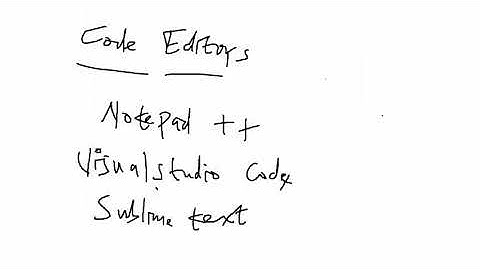 Code Editors
Notepad ++
Visual studio code
Sublime text